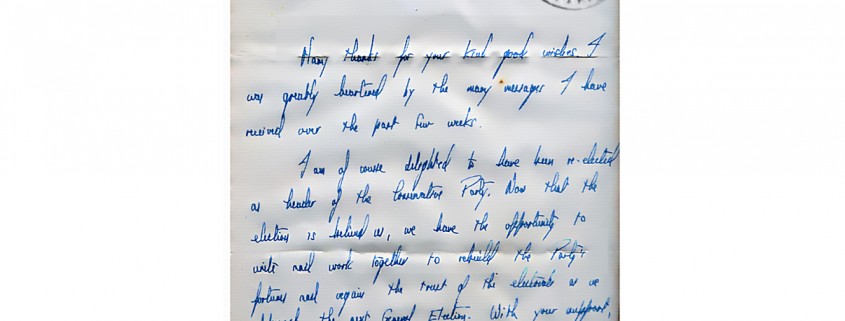 Many thanks for your kind good wishes. I
was greatly heartened by the many messages I have
received over the past few weeks.
I am of course delighted to have been re-elected
as Leader of the Conservative Party. Now that the
election is behind us, we have the opportunity to
unite and work together to rebuild the Party's
fortunes and regain the trust of the electorate as we
the next General Election. With your support,